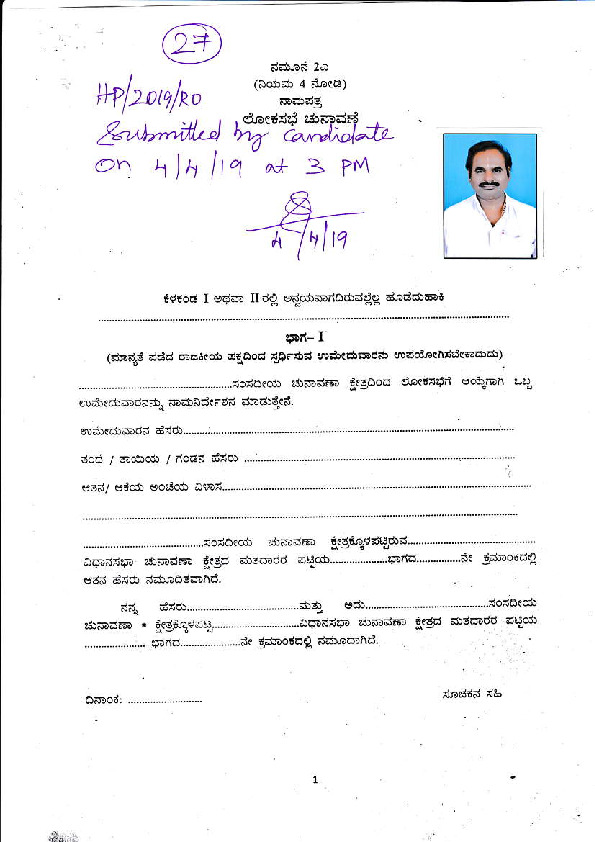 27
ನಮೂನೆ 2ಎ
(ನಿಯಮ 4 ನೋಡಿ)
ನಾಮಪತ್ರ
ಲೋಕಸಭೆ ಚುನಾವಣೆ
HP/2019/RO
Submitted by candidate
on 4/4/19 at 3 PM
4/4/19
ಕೆಳಕಂಡ I ಅಥವಾ II ರಲ್ಲಿ ಅನ್ವಯವಾಗದಿರುವಲ್ಲೆಲ್ಲ ಹೊಡೆದುಹಾಕಿ
ಭಾಗ– I
(ಮಾನ್ಯತೆ ಪಡೆದ ರಾಜಕೀಯ ಪಕ್ಷದಿಂದ ಸ್ಪರ್ಧಿಸುವ ಉಮೇದುವಾರನು ಉಪಯೋಗಿಸಬೇಕಾದುದು)
........................................ಸಂಸದೀಯ ಚುನಾವಣಾ ಕ್ಷೇತ್ರದಿಂದ ಲೋಕಸಭೆಗೆ ಆಯ್ಕೆಗಾಗಿ ಒಬ್ಬ
ಉಮೇದುವಾರನನ್ನು ನಾಮನಿರ್ದೇಶನ ಮಾಡುತ್ತೇನೆ.
ಉಮೇದುವಾರನ ಹೆಸರು........................................
ತಂದೆ / ತಾಯಿಯ / ಗಂಡನ ಹೆಸರು ........................................
ಆತನ/ ಆಕೆಯ ಅಂಚೆಯ ವಿಳಾಸ........................................
........................................ಸಂಸದೀಯ ಚುನಾವಣಾ ಕ್ಷೇತ್ರಕ್ಕೊಳಪಟ್ಟಿರುವ........................................
ವಿಧಾನಸಭಾ ಚುನಾವಣಾ ಕ್ಷೇತ್ರದ ಮತದಾರರ ಪಟ್ಟಿಯ....................ಭಾಗದ...............ನೇ ಕ್ರಮಾಂಕದಲ್ಲಿ
ಆತನ ಹೆಸರು ನಮೂದಿತವಾಗಿದೆ.
ನನ್ನ ಹೆಸರು..............................ಮತ್ತು ಅದು..............................ಸಂಸದೀಯ
ಚುನಾವಣಾ * ಕ್ಷೇತ್ರಕ್ಕೊಳಪಟ್ಟ..............................ವಿಧಾನಸಭಾ ಚುನಾವಣಾ ಕ್ಷೇತ್ರದ ಮತದಾರರ ಪಟ್ಟಿಯ
.................... ಭಾಗದ....................ನೇ ಕ್ರಮಾಂಕದಲ್ಲಿ ನಮೂದಾಗಿದೆ.
ದಿನಾಂಕ: ........................
ಸೂಚಕನ ಸಹಿ
1